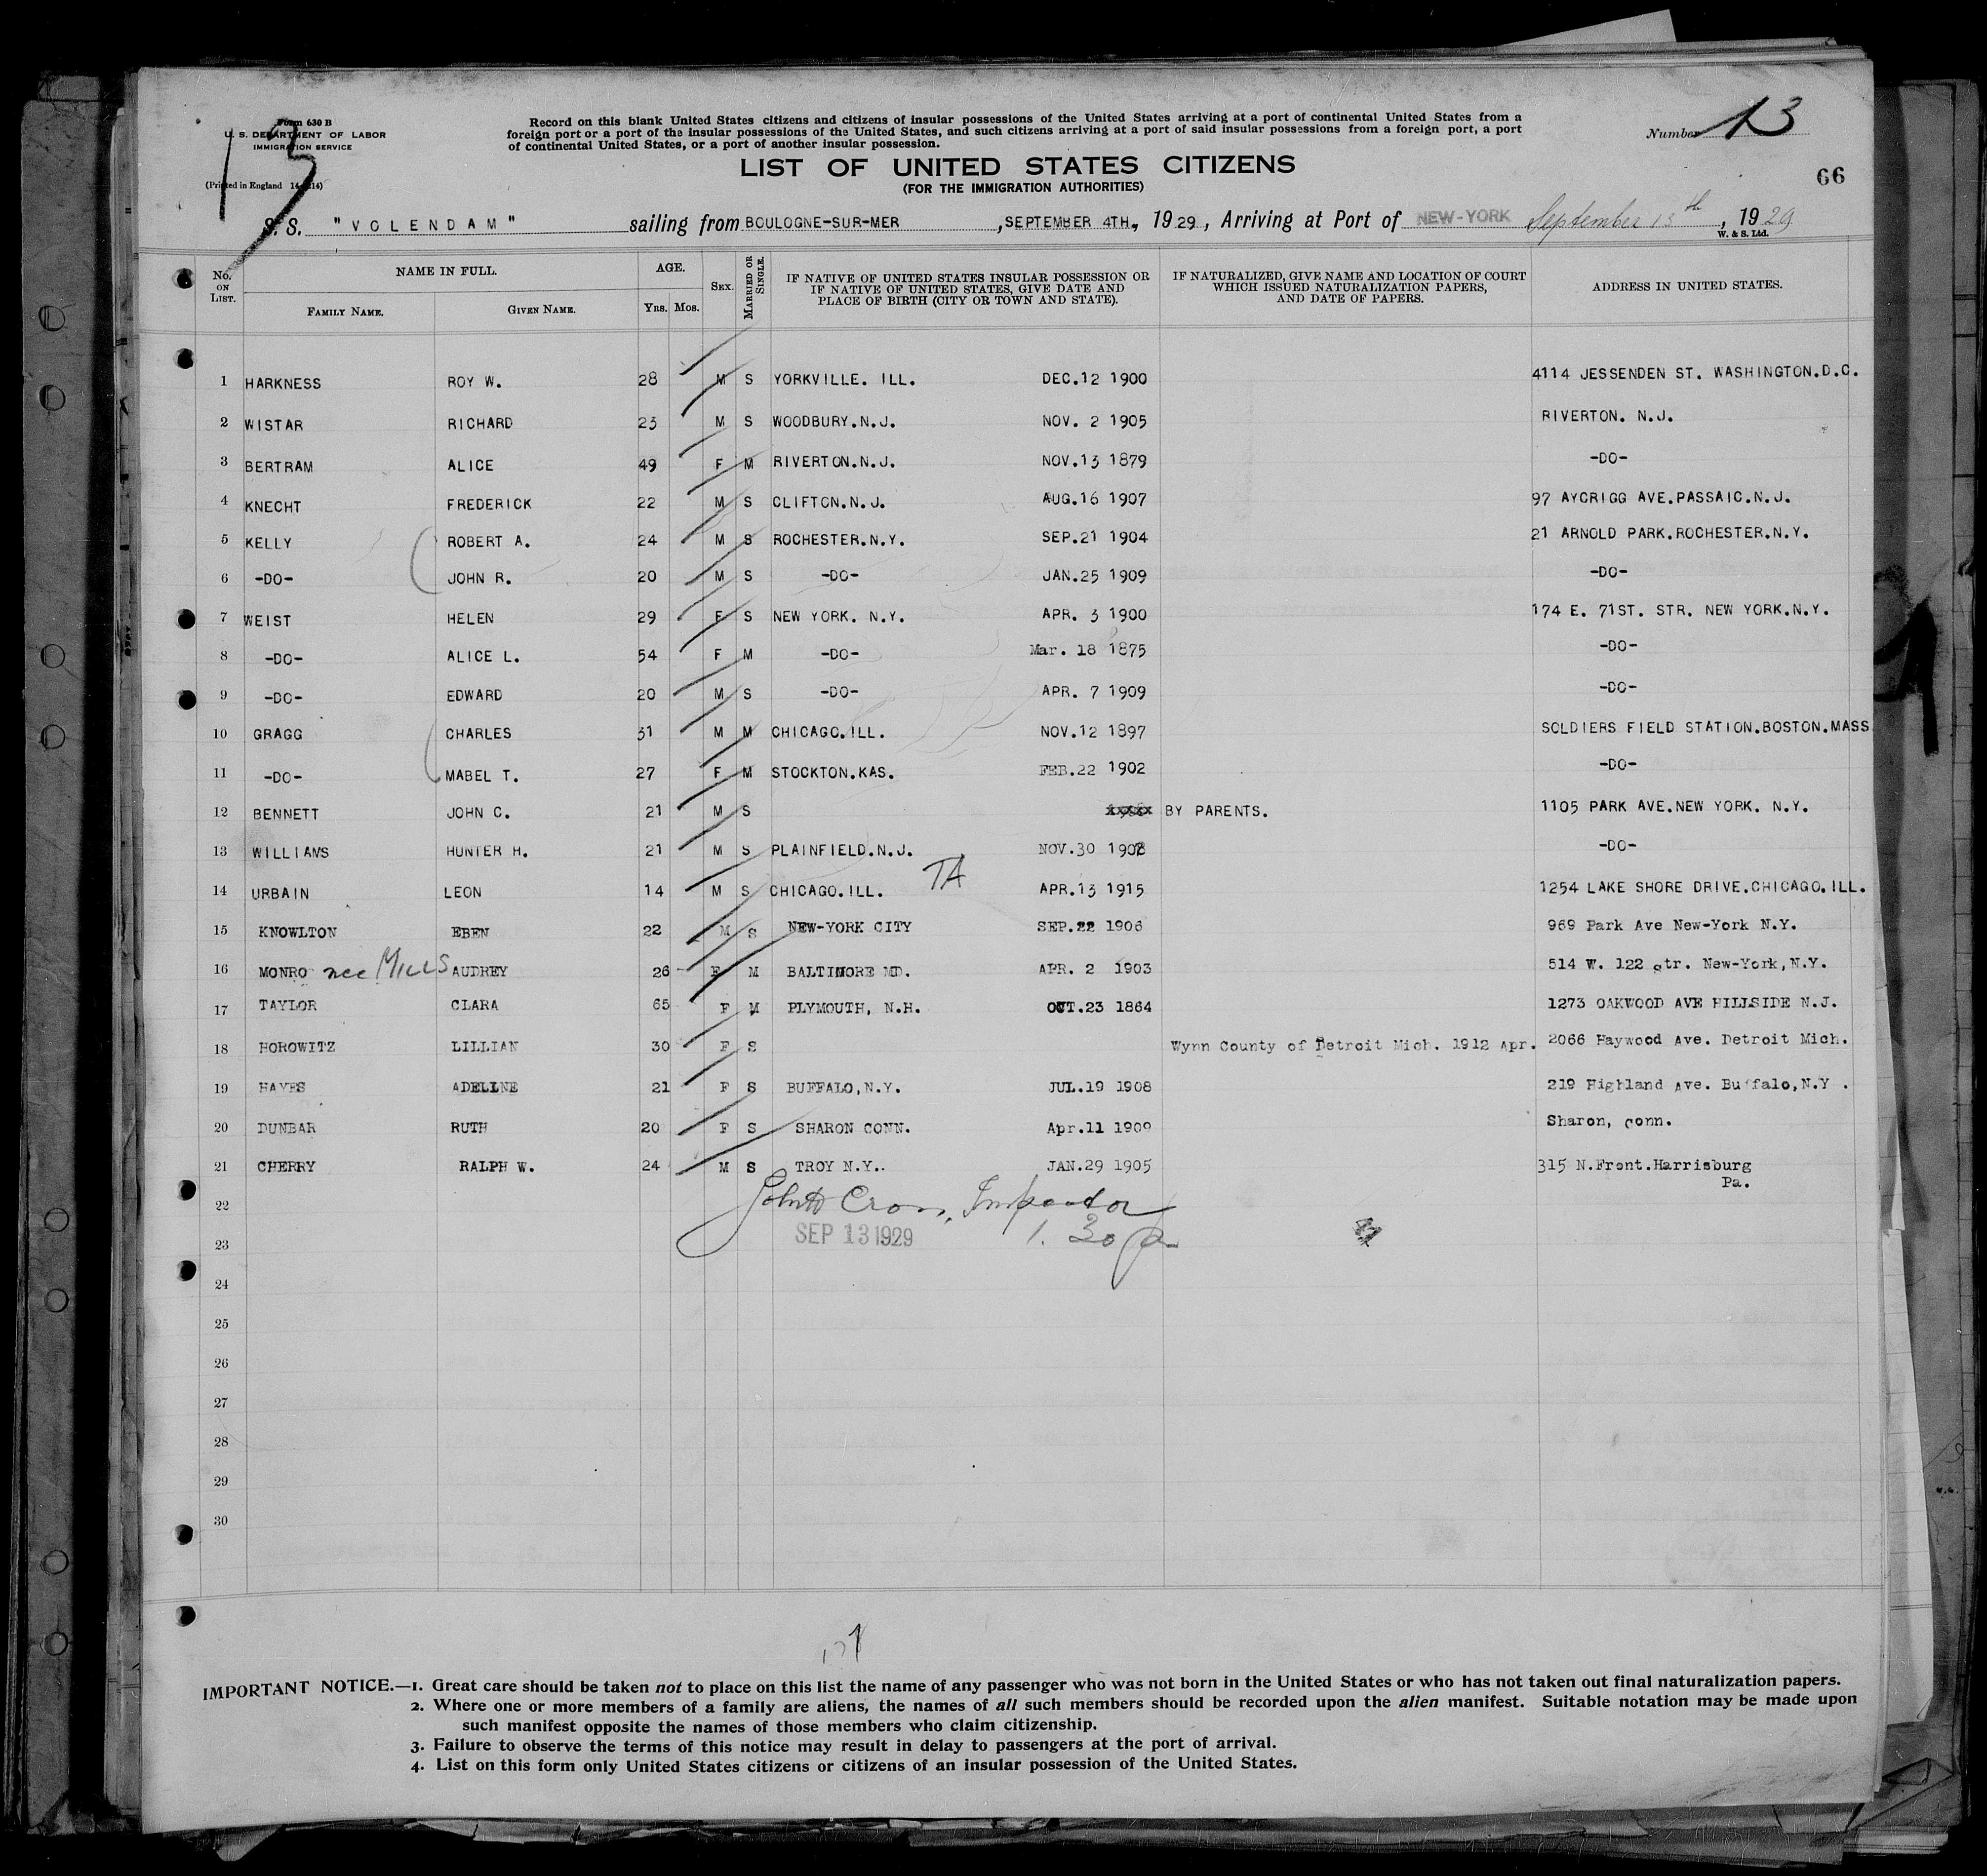 Form 630 B
U. S. DEPARTMENT OF LABOR
IMMIGRATION SERVICE
(Printed in England 14-214)
13
Record on this blank United States citizens and citizens of insular possessions of the United States arriving at a port of continental United States from a
foreign port or a port of the insular possessions of the United States, and such citizens arriving at a port of said insular possessions from a foreign port, a port
of continental United States, or a port of another insular possession.
Number 13
LIST OF UNITED STATES CITIZENS
(FOR THE IMMIGRATION AUTHORITIES)
66
S. S. "VOLENDAM" sailing from BOULOGNE-SUR-MER, SEPTEMBER 4TH., 1929, Arriving at Port of NEW-YORK September 13th, 1929
W. & S. Ltd.
No. ON LIST. NAME IN FULL. FAMILY NAME. GIVEN NAME. AGE. YRS. MOS. SEX. MARRIED OR SINGLE. IF NATIVE OF UNITED STATES INSULAR POSSESSION OR IF NATIVE OF UNITED STATES, GIVE DATE AND PLACE OF BIRTH (CITY OR TOWN AND STATE). IF NATURALIZED, GIVE NAME AND LOCATION OF COURT WHICH ISSUED NATURALIZATION PAPERS, AND DATE OF PAPERS. ADDRESS IN UNITED STATES.
1 HARKNESS ROY W. 28 M S YORKVILLE. ILL. DEC.12 1900 4114 JESSENDEN ST. WASHINGTON.D.C.
2 WISTAR RICHARD 23 M S WOODBURY.N.J. NOV. 2 1905 RIVERTON. N.J.
3 BERTRAM ALICE 49 F M RIVERTON.N.J. NOV.13 1879 -DO-
4 KNECHT FREDERICK 22 M S CLIFTON.N.J. AUG.16 1907 97 AYCRIGG AVE.PASSAIC.N.J.
5 KELLY ROBERT A. 24 M S ROCHESTER.N.Y. SEP.21 1904 21 ARNOLD PARK.ROCHESTER.N.Y.
6 -DO- JOHN R. 20 M S -DO- JAN.25 1909 -DO-
7 WEIST HELEN 29 F S NEW YORK. N.Y. APR. 3 1900 174 E. 71ST. STR. NEW YORK.N.Y.
8 -DO- ALICE L. 54 F M -DO- Mar. 18 1875 -DO-
9 -DO- EDWARD 20 M S -DO- APR. 7 1909 -DO-
10 GRAGG CHARLES 31 M M CHICAGO.ILL. NOV.12 1897 SOLDIERS FIELD STATION.BOSTON.MASS
11 -DO- MABEL T. 27 F M STOCKTON.KAS. FEB.22 1902 -DO-
12 BENNETT JOHN C. 21 M S BY PARENTS. 1105 PARK AVE.NEW YORK. N.Y.
13 WILLIAMS HUNTER H. 21 M S PLAINFIELD.N.J. NOV.30 1907 -DO-
14 URBAIN LEON 14 M S CHICAGO.ILL. TA APR.13 1915 1254 LAKE SHORE DRIVE.CHICAGO.ILL.
15 KNOWLTON EBEN 22 M S NEW-YORK CITY SEP.22 1906 969 Park Ave New-York N.Y.
16 MONRO nee MILLS AUDREY 26 F M BALTIMORE MD. APR. 2 1903 514 W. 122 str. New-York,N.Y.
17 TAYLOR CLARA 65 F M PLYMOUTH, N.H. OCT.23 1864 1273 OAKWOOD AVE HILLSIDE N.J.
18 HOROWITZ LILLIAN 30 F S Wynn County of Detroit Mich. 1912 Apr. 2066 Haywood Ave. Detroit Mich.
19 HAYES ADELINE 21 F S BUFFALO,N.Y. JUL.19 1908 219 Highland Ave. Buffalo,N.Y .
20 DUNBAR RUTH 20 F S SHARON CONN. Apr.11 1909 Sharon, conn.
21 CHERRY RALPH W. 24 M S TROY N.Y.. JAN.29 1905 315 N.Front.Harrisburg
Pa.
22 John D Cross, Inspector
23 SEP 13 1929 1.30 p
24
25
26
27
28
29
30
IMPORTANT NOTICE.—1. Great care should be taken not to place on this list the name of any passenger who was not born in the United States or who has not taken out final naturalization papers.
2. Where one or more members of a family are aliens, the names of all such members should be recorded upon the alien manifest. Suitable notation may be made upon
such manifest opposite the names of those members who claim citizenship.
3. Failure to observe the terms of this notice may result in delay to passengers at the port of arrival.
4. List on this form only United States citizens or citizens of an insular possession of the United States.